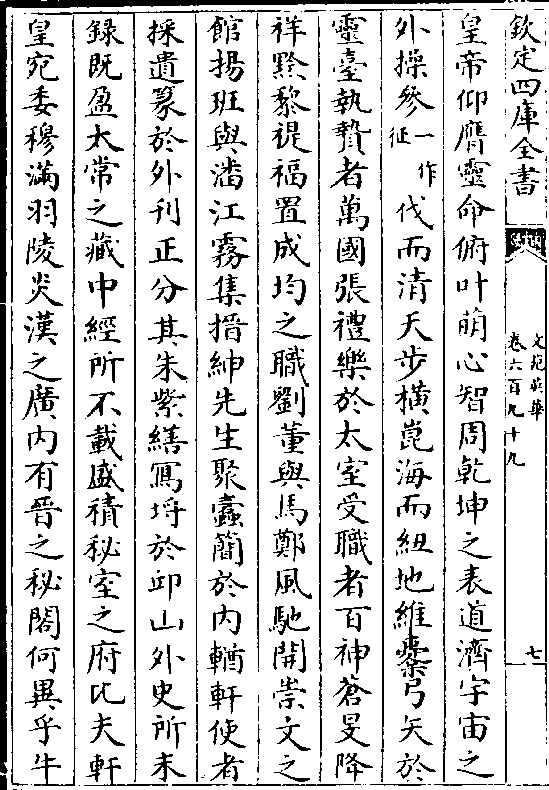 欽定四庫全書
文苑英華
卷六百九十九
七
皇帝仰膺靈命俯叶萌心智周乾坤之表道濟宇宙之
外操參一作征伐而清天步橫崑海而紐地維櫜弓矢於
靈臺執贄者萬國張禮樂於太室受職者百神蒼旻降
祥黔黎禔福置成均之職劉董與馬鄭風馳開崇文之
館揚班與潘江霧集搢紳先生聚蠹簡於内輶軒使者
採遺篆於外刊正分其朱紫繕寫埒於邱山外史所未
録既盈太常之藏中經所不載盛積秘室之府比夫軒
皇宛委穆滿羽陵炎漢之廣内有晉之秘閣何異乎牛